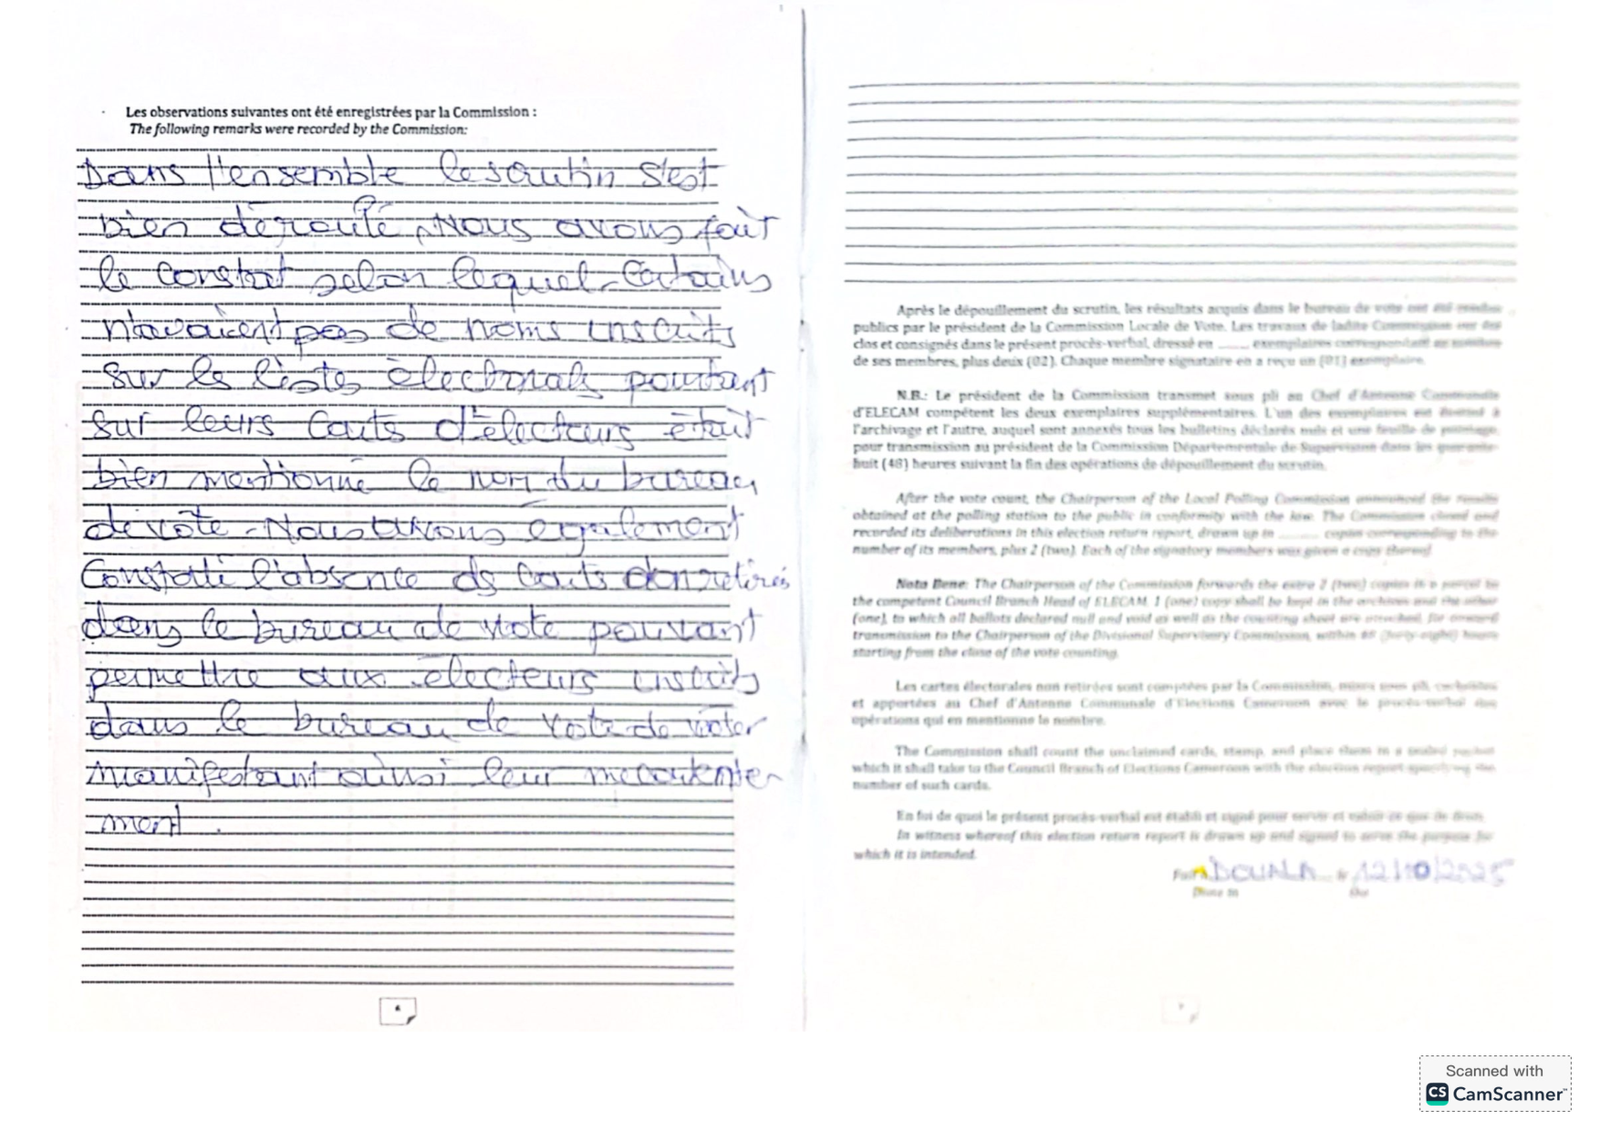 Les observations suivantes ont été enregistrées par la Commission :
The following remarks were recorded by the Commission:
Dans l'ensemble le scrutin s'est
bien déroulé. Nous avons fait
le constat selon lequel certains
n'avaient pas de noms inscrits
sur les listes électorales pourtant
sur leurs cartes d'électeurs était
bien mentionné le nom du bureau
de vote. Nous avons également
constaté l'absence de cartes non retirés
dans le bureau de vote pouvant
permettre aux électeurs inscrits
dans le bureau de vote de voter
manifestant ainsi leur mecontente
ment.
Après le dépouillement du scrutin, les résultats acquis dans le bureau de vote ont été rendus
publics par le président de la Commission Locale de Vote. Les travaux de ladite Commission ont été
clos et consignés dans le présent procès-verbal, dressé en ...... exemplaires correspondant au nombre
de ses membres, plus deux (02). Chaque membre signataire en a reçu un (01) exemplaire.
N.B.: Le président de la Commission transmet sous pli au Chef d'Antenne Communale
d'ELECAM compétent les deux exemplaires supplémentaires. L'un des exemplaires est destiné à
l'archivage et l'autre, auquel sont annexés tous les bulletins déclarés nuls et une feuille de pointage,
pour transmission au président de la Commission Départementale de Supervision dans les quarante-
huit (48) heures suivant la fin des opérations de dépouillement du scrutin.
After the vote count, the Chairperson of the Local Polling Commission announced the results
obtained at the polling station to the public in conformity with the law. The Commission closed and
recorded its deliberations in this election return report, drawn up in ...... copies corresponding to the
number of its members, plus 2 (two). Each of the signatory members was given a copy thereof.
Nota Bene: The Chairperson of the Commission forwards the extra 2 (two) copies in a parcel to
the competent Council Branch Head of ELECAM. 1 (one) copy shall be kept in the archives and the other
(one), to which all ballots declared null and void as well as the counting sheet are attached, for onward
transmission to the Chairperson of the Divisional Supervisory Commission, within 48 (forty-eight) hours
starting from the close of the vote counting.
Les cartes électorales non retirées sont comptées par la Commission, mises sous pli, cachetées
et apportées au Chef d'Antenne Communale d'Elections Cameroon avec le procès-verbal des
opérations qui en mentionne le nombre.
The Commission shall count the unclaimed cards, stamp, and place them in a sealed packet
which it shall take to the Council Branch of Elections Cameroon with the election report specifying the
number of such cards.
En foi de quoi le présent procès-verbal est établi et signé pour servir et valoir ce que de droit.
In witness whereof this election return report is drawn up and signed to serve the purpose for
which it is intended.
Fait à DOUALA le 12/10/2025
Done in
Scanned with
CS CamScanner